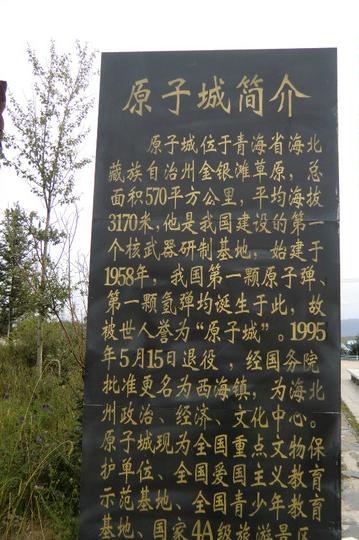 原子城简介
原子城位于青海省海北
藏族自治州金银滩草原，总
面积570平方公里，平均海拔
3170米，他是我国建设的第一
个核武器研制基地，始建于
1958年，我国第一颗原子弹、
第一颗氢弹均诞生于此，故
被世人誉为“原子城”。1995
年5月15日退役，经国务院
批准更名为西海镇，为海北
州政治、经济、文化中心。
原子城现为全国重点文物保
护单位、全国爱国主义教育
示范基地、全国青少年教育
基地、国家4A级旅游景区